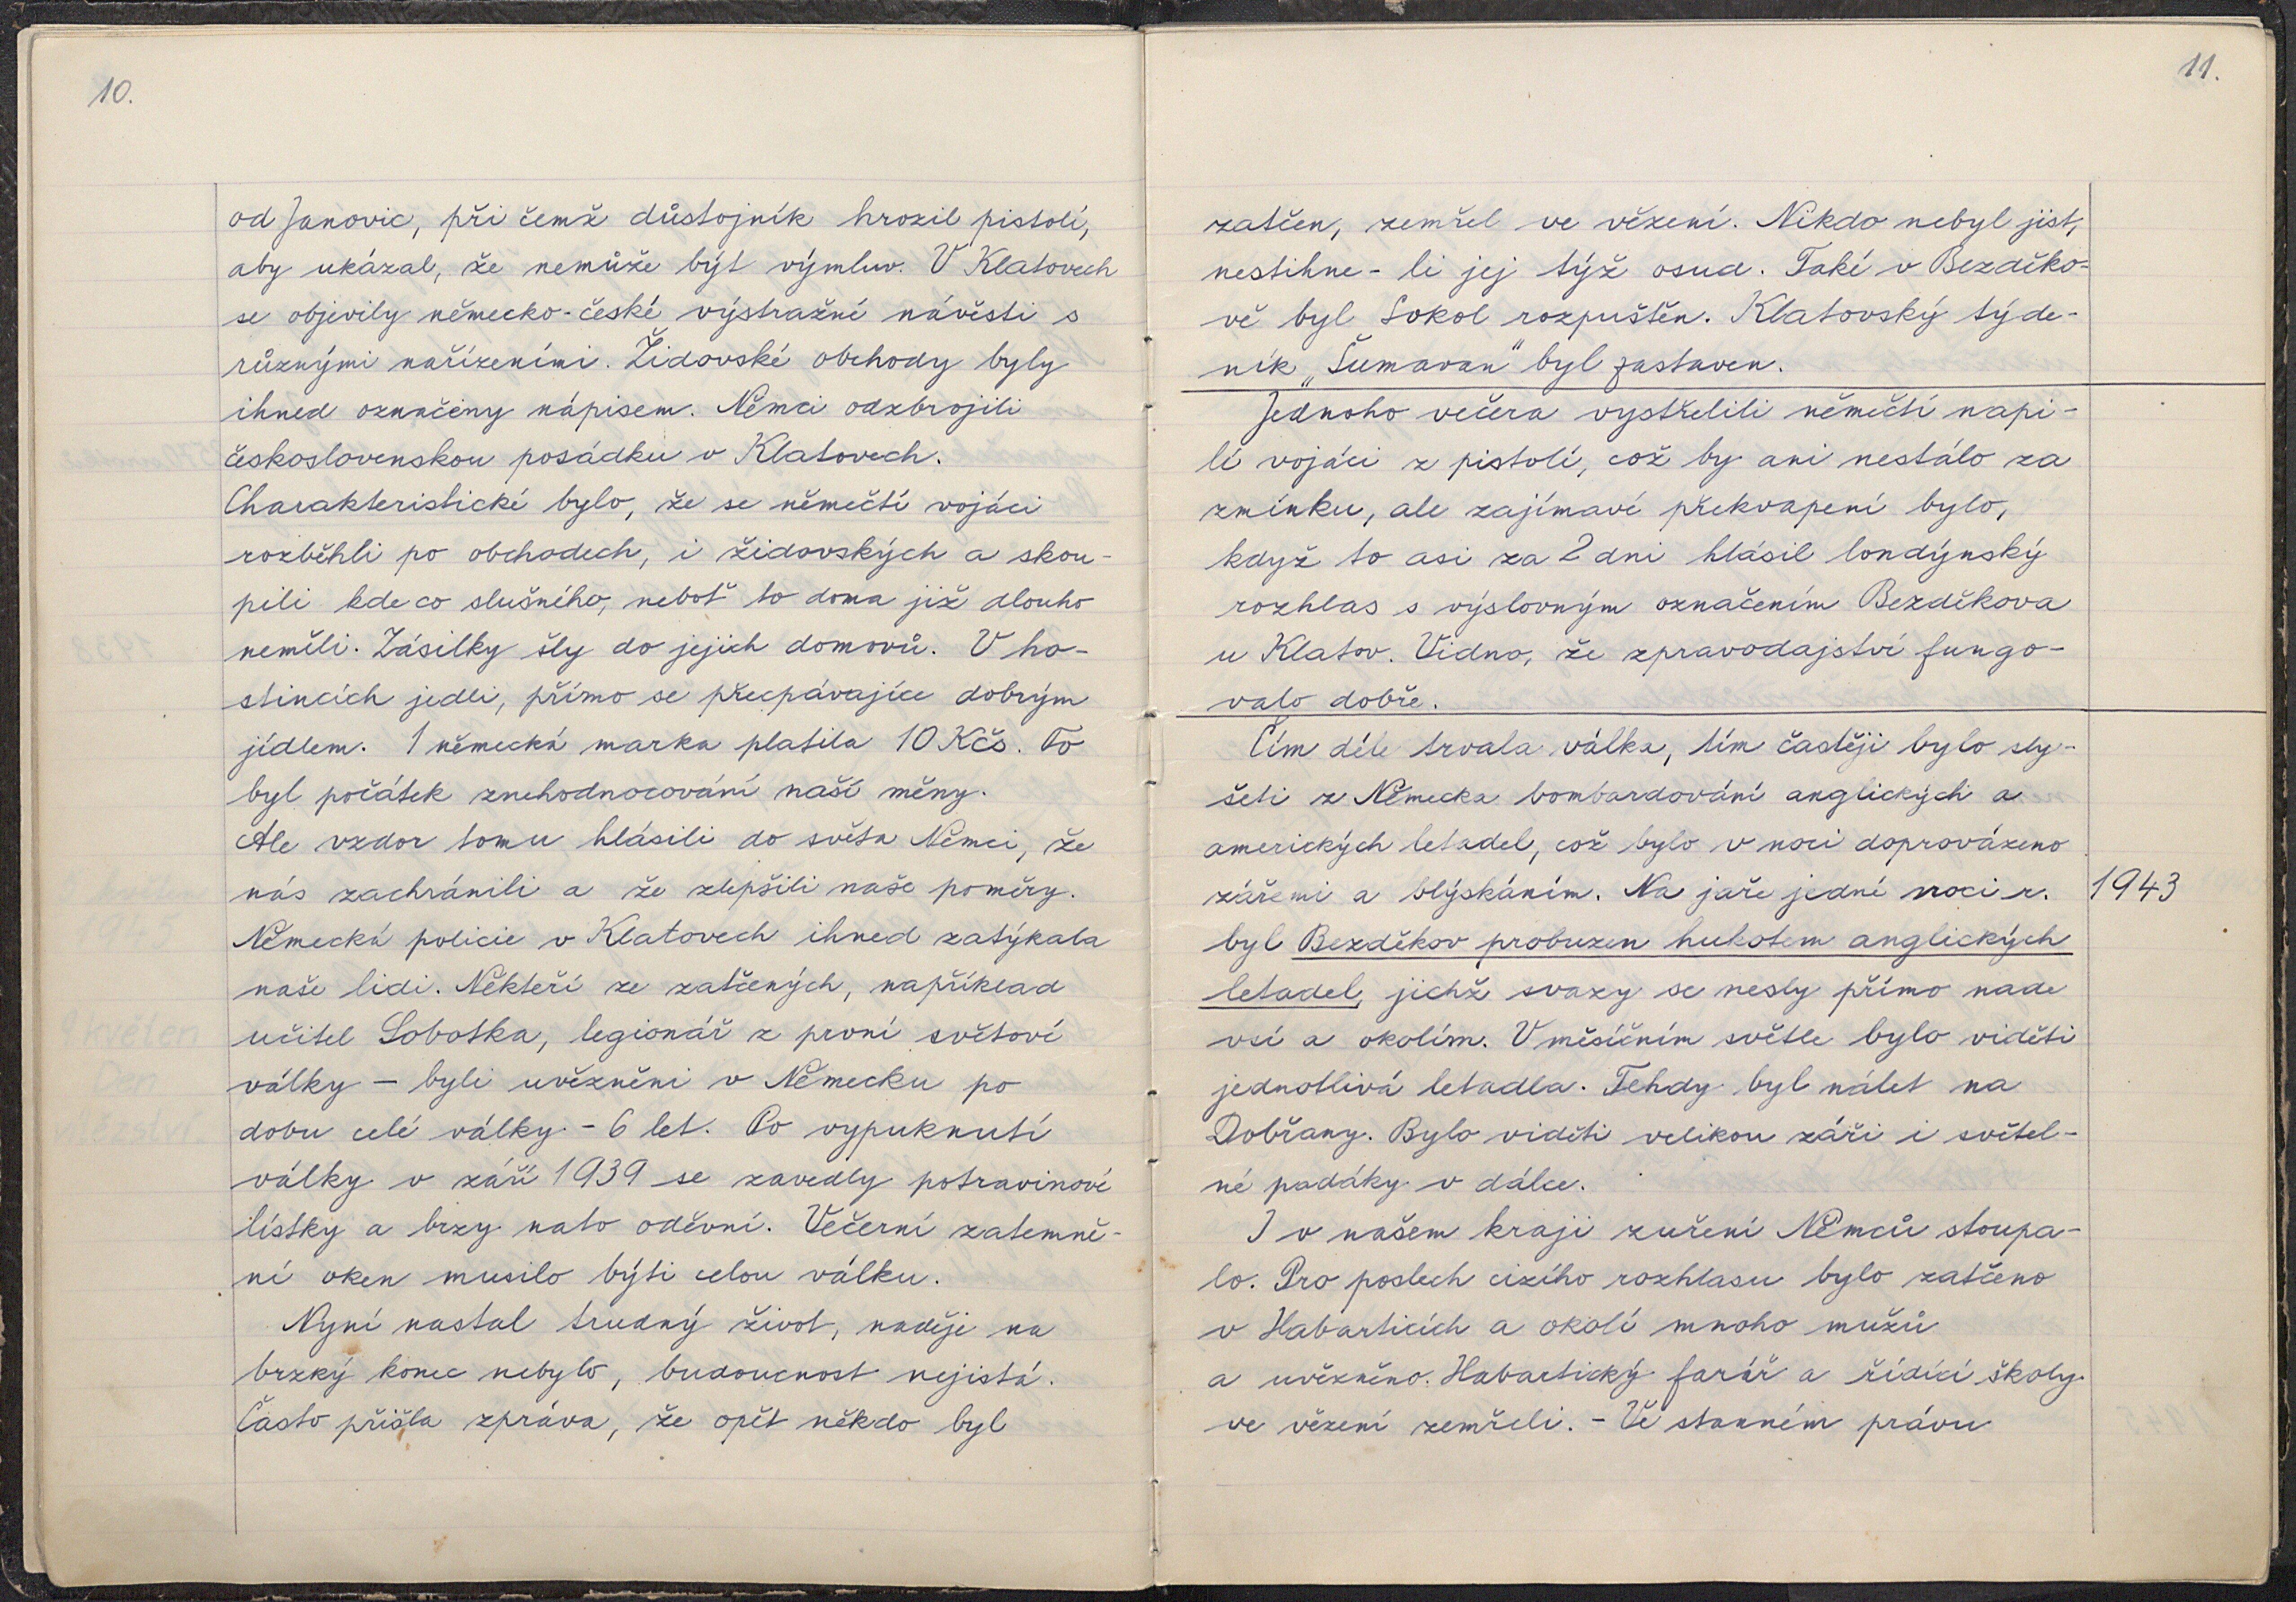 10.
od Janovic, při čemž důstojník hrozil pistolí,
aby ukázal, že nemůže být výmluv. V Klatovech
se objevily německo-české výstražné návěsti s
různými nařízeními. Židovské obchody byly
ihned označeny nápisem. Němci odzbrojili
československou posádku v Klatovech.
Charakteristické bylo, že se němečtí vojáci
rozběhli po obchodech, i židovských a skou-
pili kde co slušného, neboť to doma již dlouho
neměli. Zásilky šly do jejich domovů. V ho-
stincích jedli, přímo se přecpávajíce dobrým
jídlem. 1 německá marka platila 10 Kčs. To
byl počátek znehodnocování naší měny.
Ale vzdor tomu hlásili do světa Němci, že
nás zachránili a že zlepšili naše poměry.
Německá policie v Klatovech ihned zatýkala
naše lidi. Někteří ze zatčených, například
učitel Sobotka, legionář z první světové
války – byli uvězněni v Německu po
dobu celé války - 6 let. Po vypuknutí
války v září 1939 se zavedly potravinové
lístky a brzy nato oděvní. Večerní zatemně-
ní oken musilo býti celou válku.
Nyní nastal trudný život, naděje na
brzký konec nebylo, budoucnost nejistá.
Často přišla zpráva, že opět někdo byl
11.
zatčen, zemřel ve vězení. Nikdo nebyl jist,
nestihne-li jej týž osud. Také v Bezděko=
vě byl Sokol rozpuštěn. Klatovský týde-
ník „Šumavan" byl zastaven.
Jednoho večera vystřelili němečtí napi-
lí vojáci z pistolí, což by ani nestálo za
zmínku, ale zajímavé překvapení bylo,
když to asi za 2 dni hlásil londýnský
rozhlas s výslovným označením Bezděkova
u Klatov. Vidno, že zpravodajství fungo-
valo dobře.
Čím déle trvala válka, tím častěji bylo sly-
šeti z Německa bombardování anglických a
amerických letadel, což bylo v noci doprovázeno
zářemi a blýskáním. Na jaře jedné noci r. 1943
byl Bezděkov probuzen hukotem anglických
letadel, jichž svazy se nesly přímo nade
vsí a okolím. V měsíčním světle bylo viděti
jednotlivá letadla. Tehdy byl nálet na
Dobřany. Bylo viděti velikou záři i světel-
né padáky v dálce.
I v našem kraji zuření Němců stoupa-
lo. Pro poslech cizího rozhlasu bylo zatčeno
v Habarticích a okolí mnoho mužů
a uvězněno. Habartický farář a řídící školy
ve vězení zemřeli. - Ve stanném právu